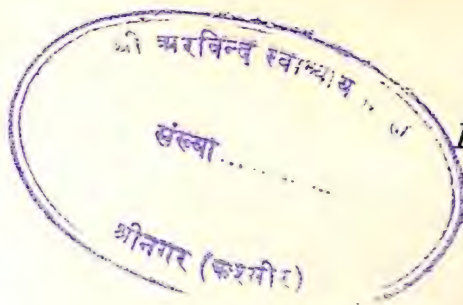 श्री अरविन्द स्वाध्याय
संख्या..........
श्रीनगर (कश्मीर)